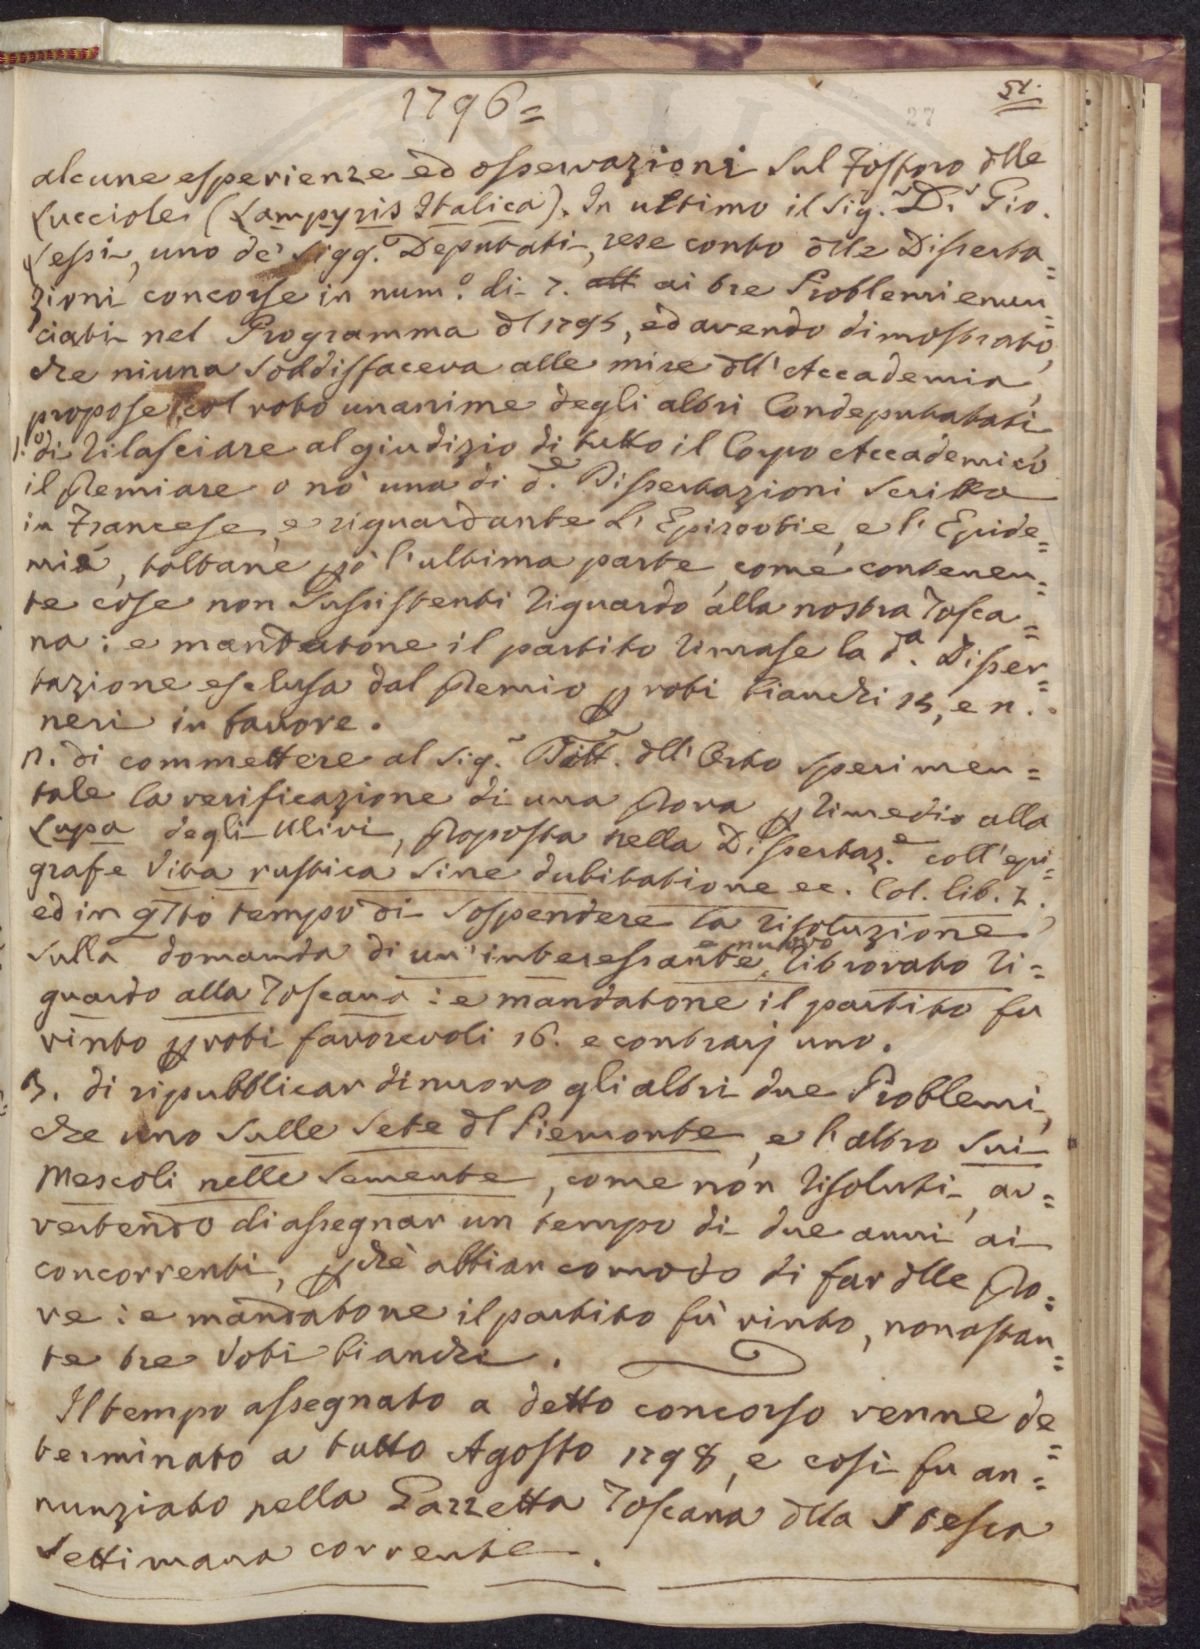 1796=
51.
27
alcune esperienze ed osservazioni sul Fosforo dlle
Lucciole (Lampyris Italica). In ultimo il Sig.r D.r Gio.
Lessi, uno de' Sigg.ri Deputati, rese conto dlle Disserta=
zioni concorse in num.o di 7. ai tre Problemi enun=
ciati nel Programma dl 1795, ed avendo dimostrato,
che niuna soddisfaceva alle mire dll' Accademia,
propose col voto unanime degli altri Condeputatati
1.o di rilasciare al giudizio di tutto il Corpo Accademico
il premiare o nò una di d.e Dissertazioni scritta
in Francese, e riguardante l' Epizootie, e l' Epide=
mia, toltane pò l'ultima parte, come contenen=
te cose non sussistenti riguardo alla nostra Tosca=
na: e mandatone il partito rimase la d.a Disser=
tazione esclusa dal premio p voti bianchi 15, e 11.
neri in favore.
2. di commettere al Sig.r Dott. dll' Orto sperimen=
tale la verificazione di una prova p rimedio alla
Lupa degli Ulivi, proposta nella Dissertaz.e coll' epi=
grafe Vita rustica sine dubitatione ec. Col. lib. 1.
ed in qsto tempo di sospendere la risoluzione
sulla domanda di un' interessante, e nuovo ritrovato ri=
guardo alla Toscana: e mandatone il partito fu
vinto p voti favorevoli 16. e contrarj uno.
3. di ripubblicar di nuovo gli altri due Problemi,
che uno sulle Sete dl Piemonte, e l' altro sui
Mescoli nelle Semente, come non risoluti, av=
vertendo di assegnar un tempo di due anni ai
concorrenti, pchè abbian comodo di far dlle pro=
ve: e mandatone il partito fù vinto, nonostan=
te tre Voti bianchi.
Il tempo assegnato a detto concorso venne de=
terminato a tutto Agosto 1798, e così fu an=
nunziato nella Gazzetta Toscana dlla stessa
Settimana corrente.